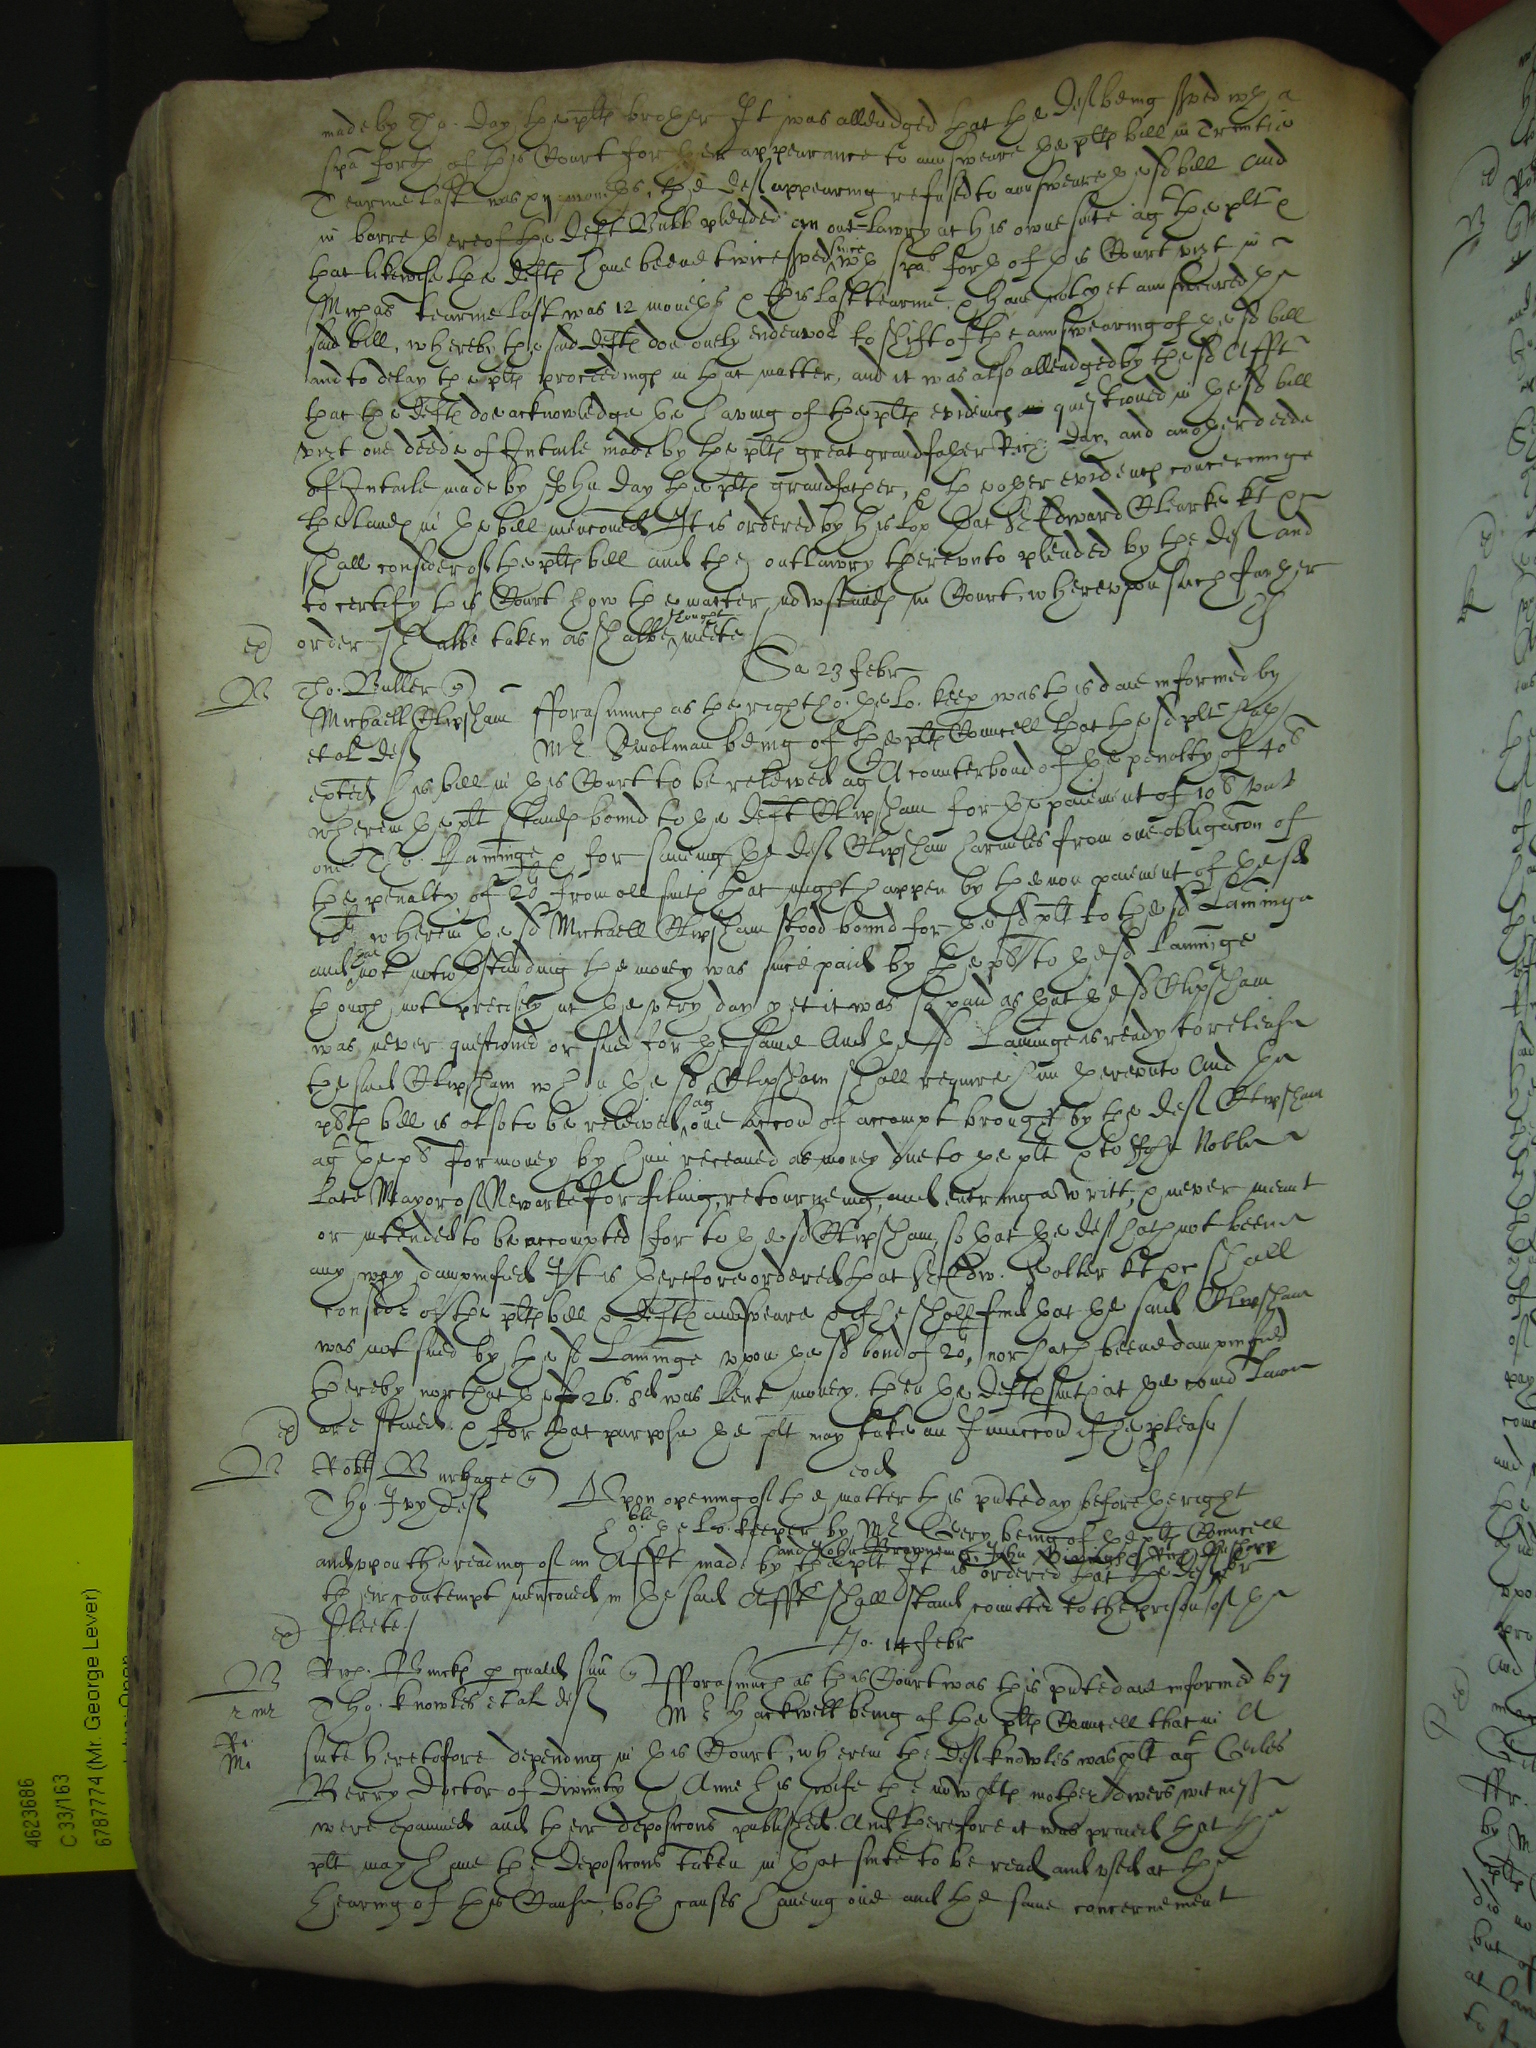 made by Tho. Day the pltes brother It was alleadged that the Deft being served wth a
spa forth of this Court for their appearance to aunsweare the pltes bill in Trinitie
Tearme last was xij moneths, the Deft appearing refused to aunsweare the sd bill And
in barre thereof the Deft Bubb pleaded an out-lawry at his owne suite agt the plt &
that likewise the Deftes have beene twice served since wth spas forth of this Court vizt in
Michas tearme last was 12 moneths & this last tearme, & have not yet aunsweared the
said bill, whereby the said Deftes doe onely endeavor to shift of the aunswearing of the sd bill
and to delay the pltes proceedinges in that matter, and it was also alleadged by the sd Afft
that the Deftes doe acknowledge the having of the pltes evidences questioned in the sd bill
vizt one deede of Intaile made by the pltes great grandfather Rich: Day, and another deede
of Intaile made by John Day the pltes grandfather, & the other evidences concerninge
the landes in the bill menconed It is ordered by his Lop that Sr Edward Clearke kt &c
shall consider of the pltes bill and the outlawry thereunto pleaded by the Deft and
to certify this Court how the matter now standes in Court, whereupon such further
ex order shalbe taken as shalbe thought meete
Sa 23 febr
Tho. Buller q
Michaell Clipsham et al Deft
fforasmuch as the right ho: the Lo: keep was this daie informed by
Mr Smolman being of the pltes Councell that the sd plt hath
exted his bill in this Court to be releived agt A counterbond of the penalty of 40s
wherein the plt standes bound to the Deft Clipsham for the paiement of 10s unto
one Tho. Laminge & for saveing the Deft Clipsham harmles from one obligacon of
the penalty of 20s from all suites that might happen by the non paiement of the sd
10s wherein the sd Michaell Clipsham stood bound for the sd plt to the sd Laminge
and that notwthstanding the money was since paid by the plt to the sd Laminge
though not precisely at the very day yet it was so paid as that the sd Clipsham
was never questioned or sued for the same And the sd Laminge is ready to release
the said Clipsham when the sd Clipsham shall require him thereunto And the
pltes bill is also to be releived agt one accon of accompt brought by the Deft Clipsham
agt the plt for money by him receaved as money due to the plt & to John Noble
late Mayor of Newarke for filing, retourneing, and entring a writt, & never meant
or intended to be accompted for to the sd Clipsham, so that the Deft hath not beene
any way dampnified It is therefore ordered that Sr Edw. Salter kt &c shall
consider of the pltes bill & Deftes aunsweare & if he shall find that the said Clipsham
was not sued by the sd Laminge upon the sd bond of 20s, nor hath beene dampnified
thereby nor that the 26s. 8d was lent money. then the Deftes suites at the comon Lawe
ex are staied & for that purpose the plt may take an Iniuccon if he please
Robt Burbage q
Tho. Ivy Deft
eod
Upon opening of the matter this pnte day before the right
hoble the Lo: keeper by Mr Gery being of the pltes Councell
and upon the reading of an Afft made by the plt It is ordered that the Deft for
their contempt menconed in the said Afft shall stand comitted to the prison of the
ex Fleete
Jo. 14 febr
Ric. Brinckes p guardn suu q
Tho. knowles et al Deft
fforasmuch as this Court was this pnte daie informed by
Mr Hackwell being of the pltes Councell that in A
suite heretofore depending in this Court, wherein the Deft knowles was plt agt Geiles
Berry Doctor of Divinity & Anne his wife the now pltes mother divers witnesses
were examined and their deposicons published. And therefore it was praied that the
plt may have the deposicons taken in that suite to be read and used at the
hearing of this Cause, both causes haveing one and the same concernement
4623686
C 33/163
6787774 (Mr. George Lever)